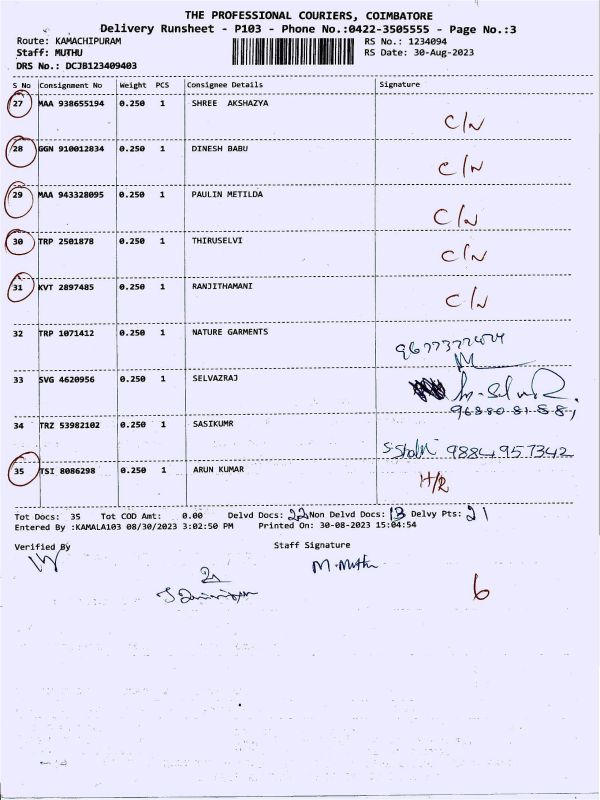 THE PROFESSIONAL COURIERS, COIMBATORE
Delivery Runsheet - P103 - Phone No.:0422-3505555 - Page No.:3
Route: KAMACHIPURAM RS No.: 1234094
Staff: MUTHU RS Date: 30-Aug-2023
DRS No.: DCJB123409403
S No Consignment No Weight PCS Consignee Details Signature
27 MAA 938655194 0.250 1 SHREE AKSHAZYA C/N
28 GGN 910012834 0.250 1 DINESH BABU C/N
29 MAA 943328095 0.250 1 PAULIN METILDA C/N
30 TRP 2501878 0.250 1 THIRUSELVI C/N
31 KVT 2897485 0.250 1 RANJITHAMANI C/N
32 TRP 1071412 0.250 1 NATURE GARMENTS
33 SVG 4620956 0.250 1 SELVAZRAJ
34 TRZ 53982102 0.250 1 SASIKUMR 9884957342
35 TSI 8086298 0.250 1 ARUN KUMAR
Tot Docs: 35 Tot COD Amt: 0.00 Delvd Docs: 22 Non Delvd Docs: 13 Delvy Pts: 21
Entered By :KAMALA103 08/30/2023 3:02:50 PM Printed On: 30-08-2023 15:04:54
Verified By Staff Signature
M. Muthu
6